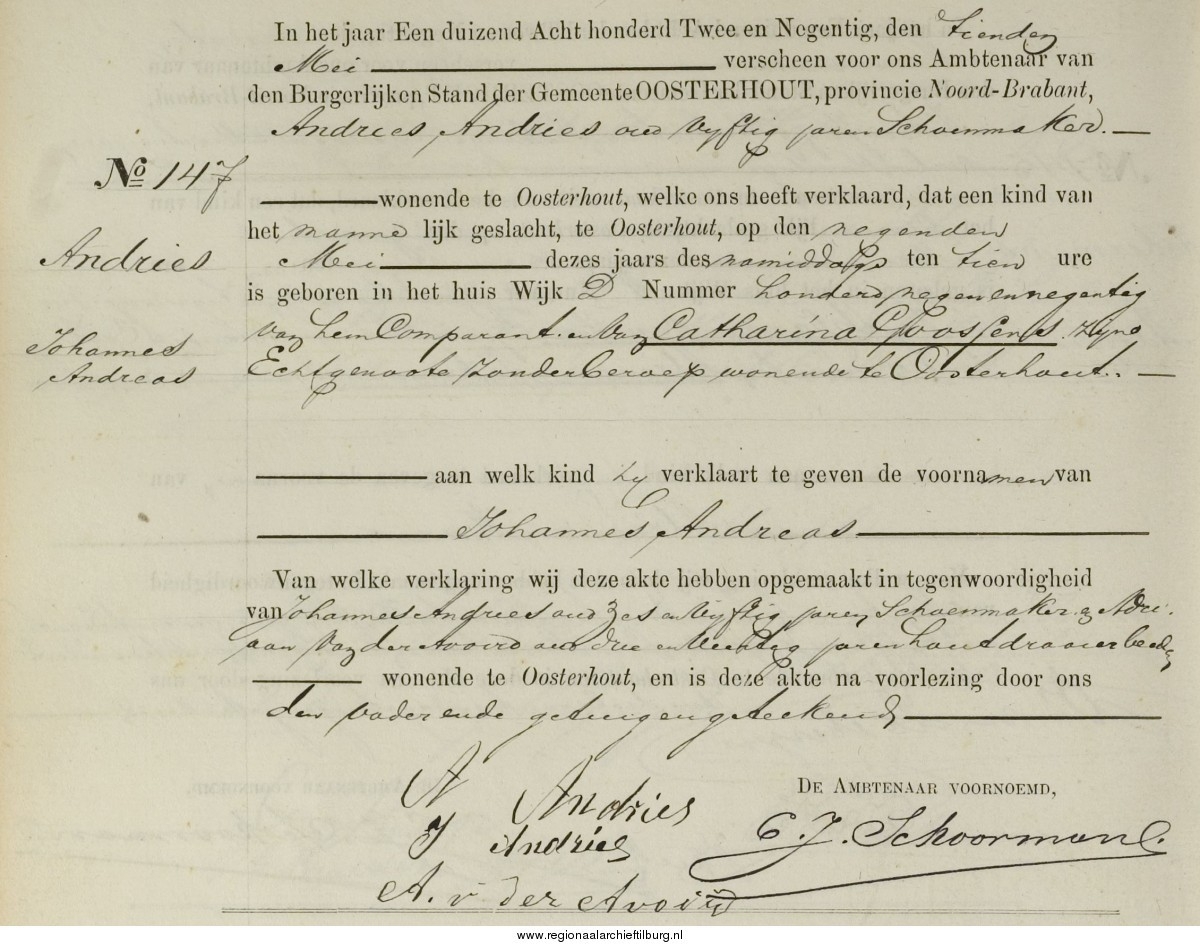 In het jaar Een duizend Acht honderd Twee en Negentig, den tienden
Mei verscheen voor ons Ambtenaar van
den Burgerlijken Stand der Gemeente OOSTERHOUT, provincie Noord-Brabant,
Andries Andries oud vyftig jaren Schoenmaker.
No 147
wonende te Oosterhout, welke ons heeft verklaard, dat een kind van
het manne lijk geslacht, te Oosterhout, op den negenden
Andries
Mei dezes jaars des namiddags ten tien ure
is geboren in het huis Wijk D Nummer honderd negen en negentig
van hem Comparant en van Catharina Goossens zyne
Johannes
Andreas
Echtgenoote zonder beroep wonende te Oosterhout.
aan welk kind hy verklaart te geven de voornamen van
Johannes Andreas
Van welke verklaring wij deze akte hebben opgemaakt in tegenwoordigheid
van Johannes Andries oud zes en vyftig jaren Schoenmaker & Adri-
aan van der Avoird oud drie en jaren houtdraaier beiden
wonende te Oosterhout, en is deze akte na voorlezing door ons
den vader en de getuigen geteekend
A Andries
DE AMBTENAAR VOORNOEMD,
J Andries
C. J. Schoormans.
A. v der Avoird
www.regionaalarchieftilburg.nl